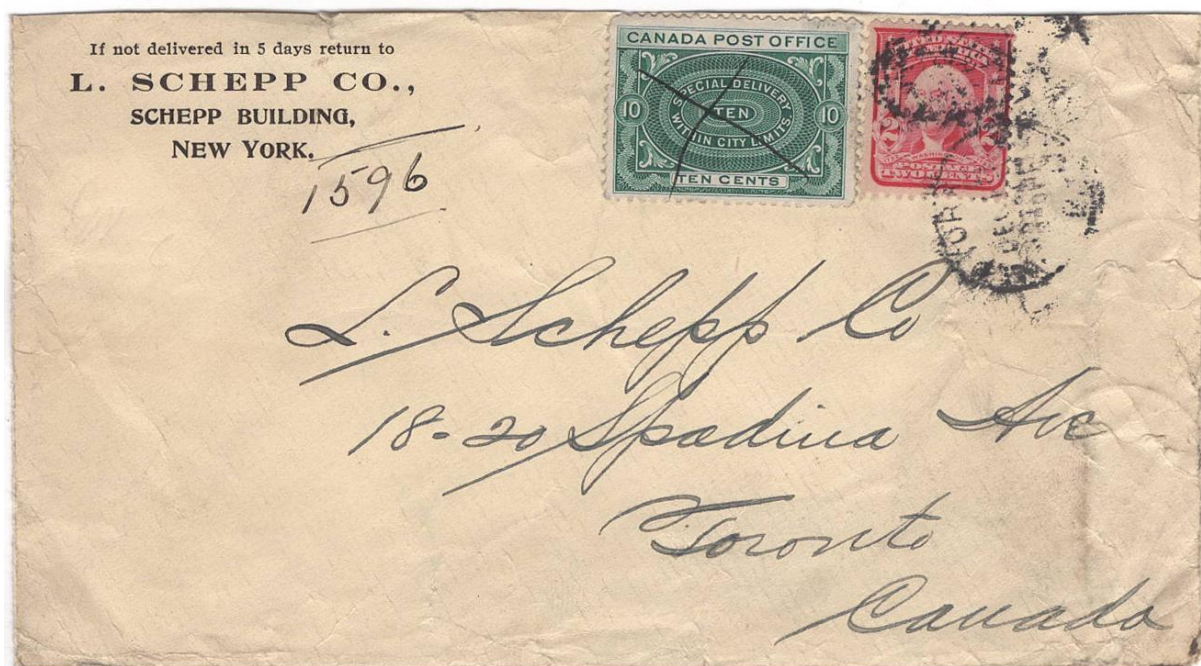 If not delivered in 5 days return to
L. SCHEPP CO.,
SCHEPP BUILDING,
NEW YORK.
1596
CANADA POST OFFICE
SPECIAL DELIVERY
10 TEN 10
WITHIN CITY LIMITS
TEN CENTS
2 2
POSTAGE
TWO CENTS
L. Schepp Co
18-20 Spadina Ave
Toronto
Canada